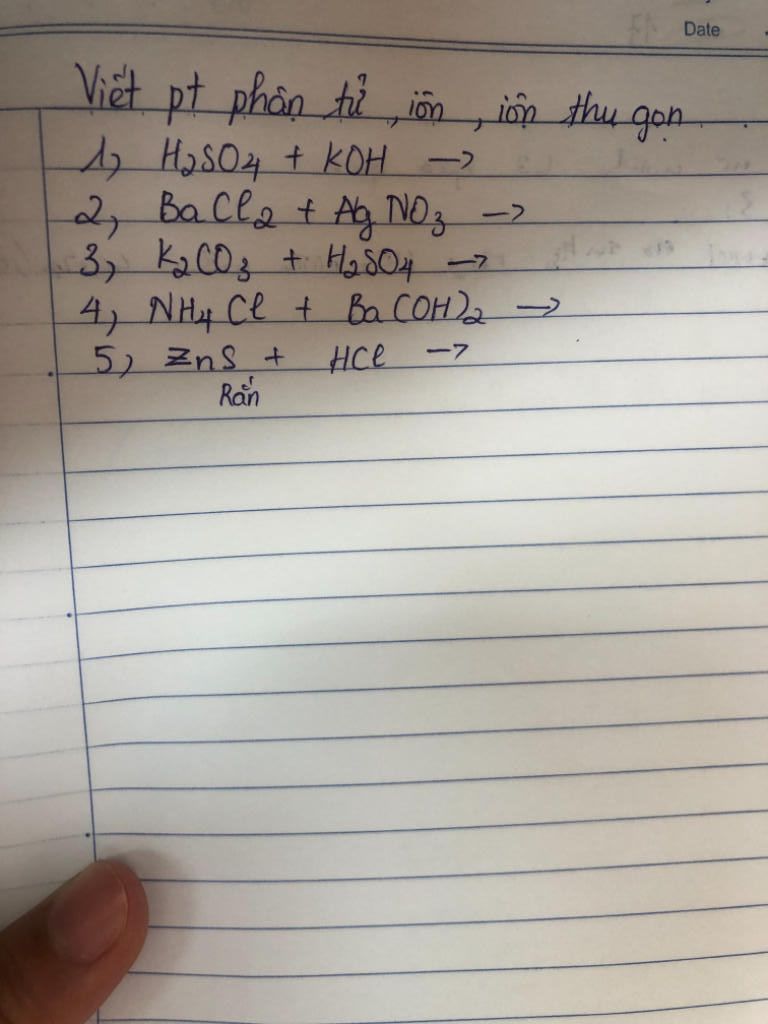 Date
Viết pt phân tử, iôn, iôn thu gọn.
1, H₂SO4 + KOH →
2, BaCl₂ + AgNO₃ →
3, K₂CO₃ + H₂SO4 →
4, NH4Cl + Ba(OH)₂ →
5, ZnS + HCl →
Rắn